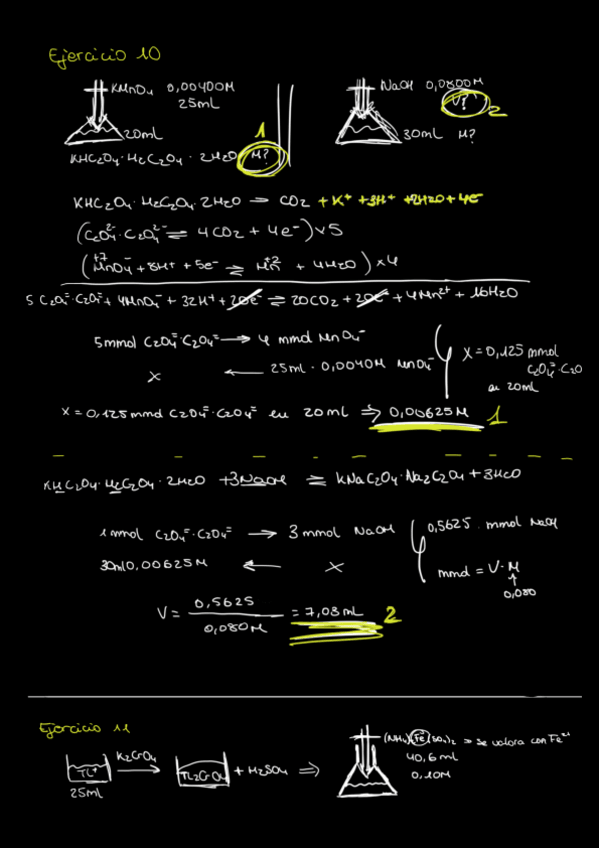 Ejercicio 10
KMnO4 0,00400M
25mL
20mL
KHC2O4·H2C2O4·2H2O M?
1
NaOH 0,0800M
V?
2
30mL M?
KHC2O4·H2C2O4·2H2O → CO2 + K+ + 3H+ + 2H2O + 4e-
(C2O4=·C2O4= ⇌ 4CO2 + 4e-) x5
(+7 MnO4- + 8H+ + 5e- ⇌ Mn+2 + 4H2O) x4
5 C2O4=·C2O4= + 4MnO4- + 32H+ + 20e- ⇌ 20CO2 + 20e- + 4Mn2+ + 16H2O
5mmol C2O4=·C2O4= → 4 mmol MnO4-
x ← 25mL · 0,0040M MnO4-
x = 0,125 mmol
C2O4=·C2O
en 20mL
x = 0,125 mmol C2O4=·C2O4= en 20mL ⇒ 0,00625M 1
KHC2O4·H2C2O4·2H2O + 3NaOH ⇌ KNaC2O4·Na2C2O4 + 3H2O
1mmol C2O4=·C2O4= → 3 mmol NaOH
30ml 0,00625M ← x
0,5625 mmol NaOH
mmol = V·M
↑
0,080
V = 0,5625 / 0,080M = 7,03mL 2
Ejercicio 11
TL+
25mL
K2CrO4
TL2CrO4
+ H2SO4 ⇒
(NH4)2Fe(SO4)2 ⇒ se valora con Fe2+
40,6 mL
0,10M